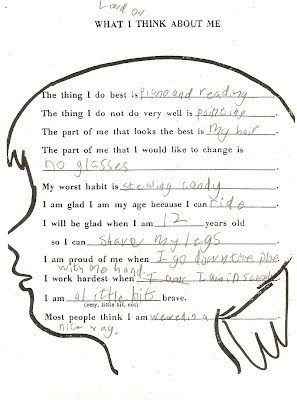 Land on
WHAT I THINK ABOUT ME
The thing I do best is piano and reading
The thing I do not do very well is painting.
The part of me that looks the best is my hair.
The part of me that I would like to change is
no glasses.
My worst habit is stealing candy.
I am glad I am my age because I can ride.
I will be glad when I am 12 years old
so I can shave my legs
I am proud of me when I go down the
with one hand.
I work hardest when I am in
I am a little bits brave.
(very, little bit, not)
Most people think I am in a
nice way.